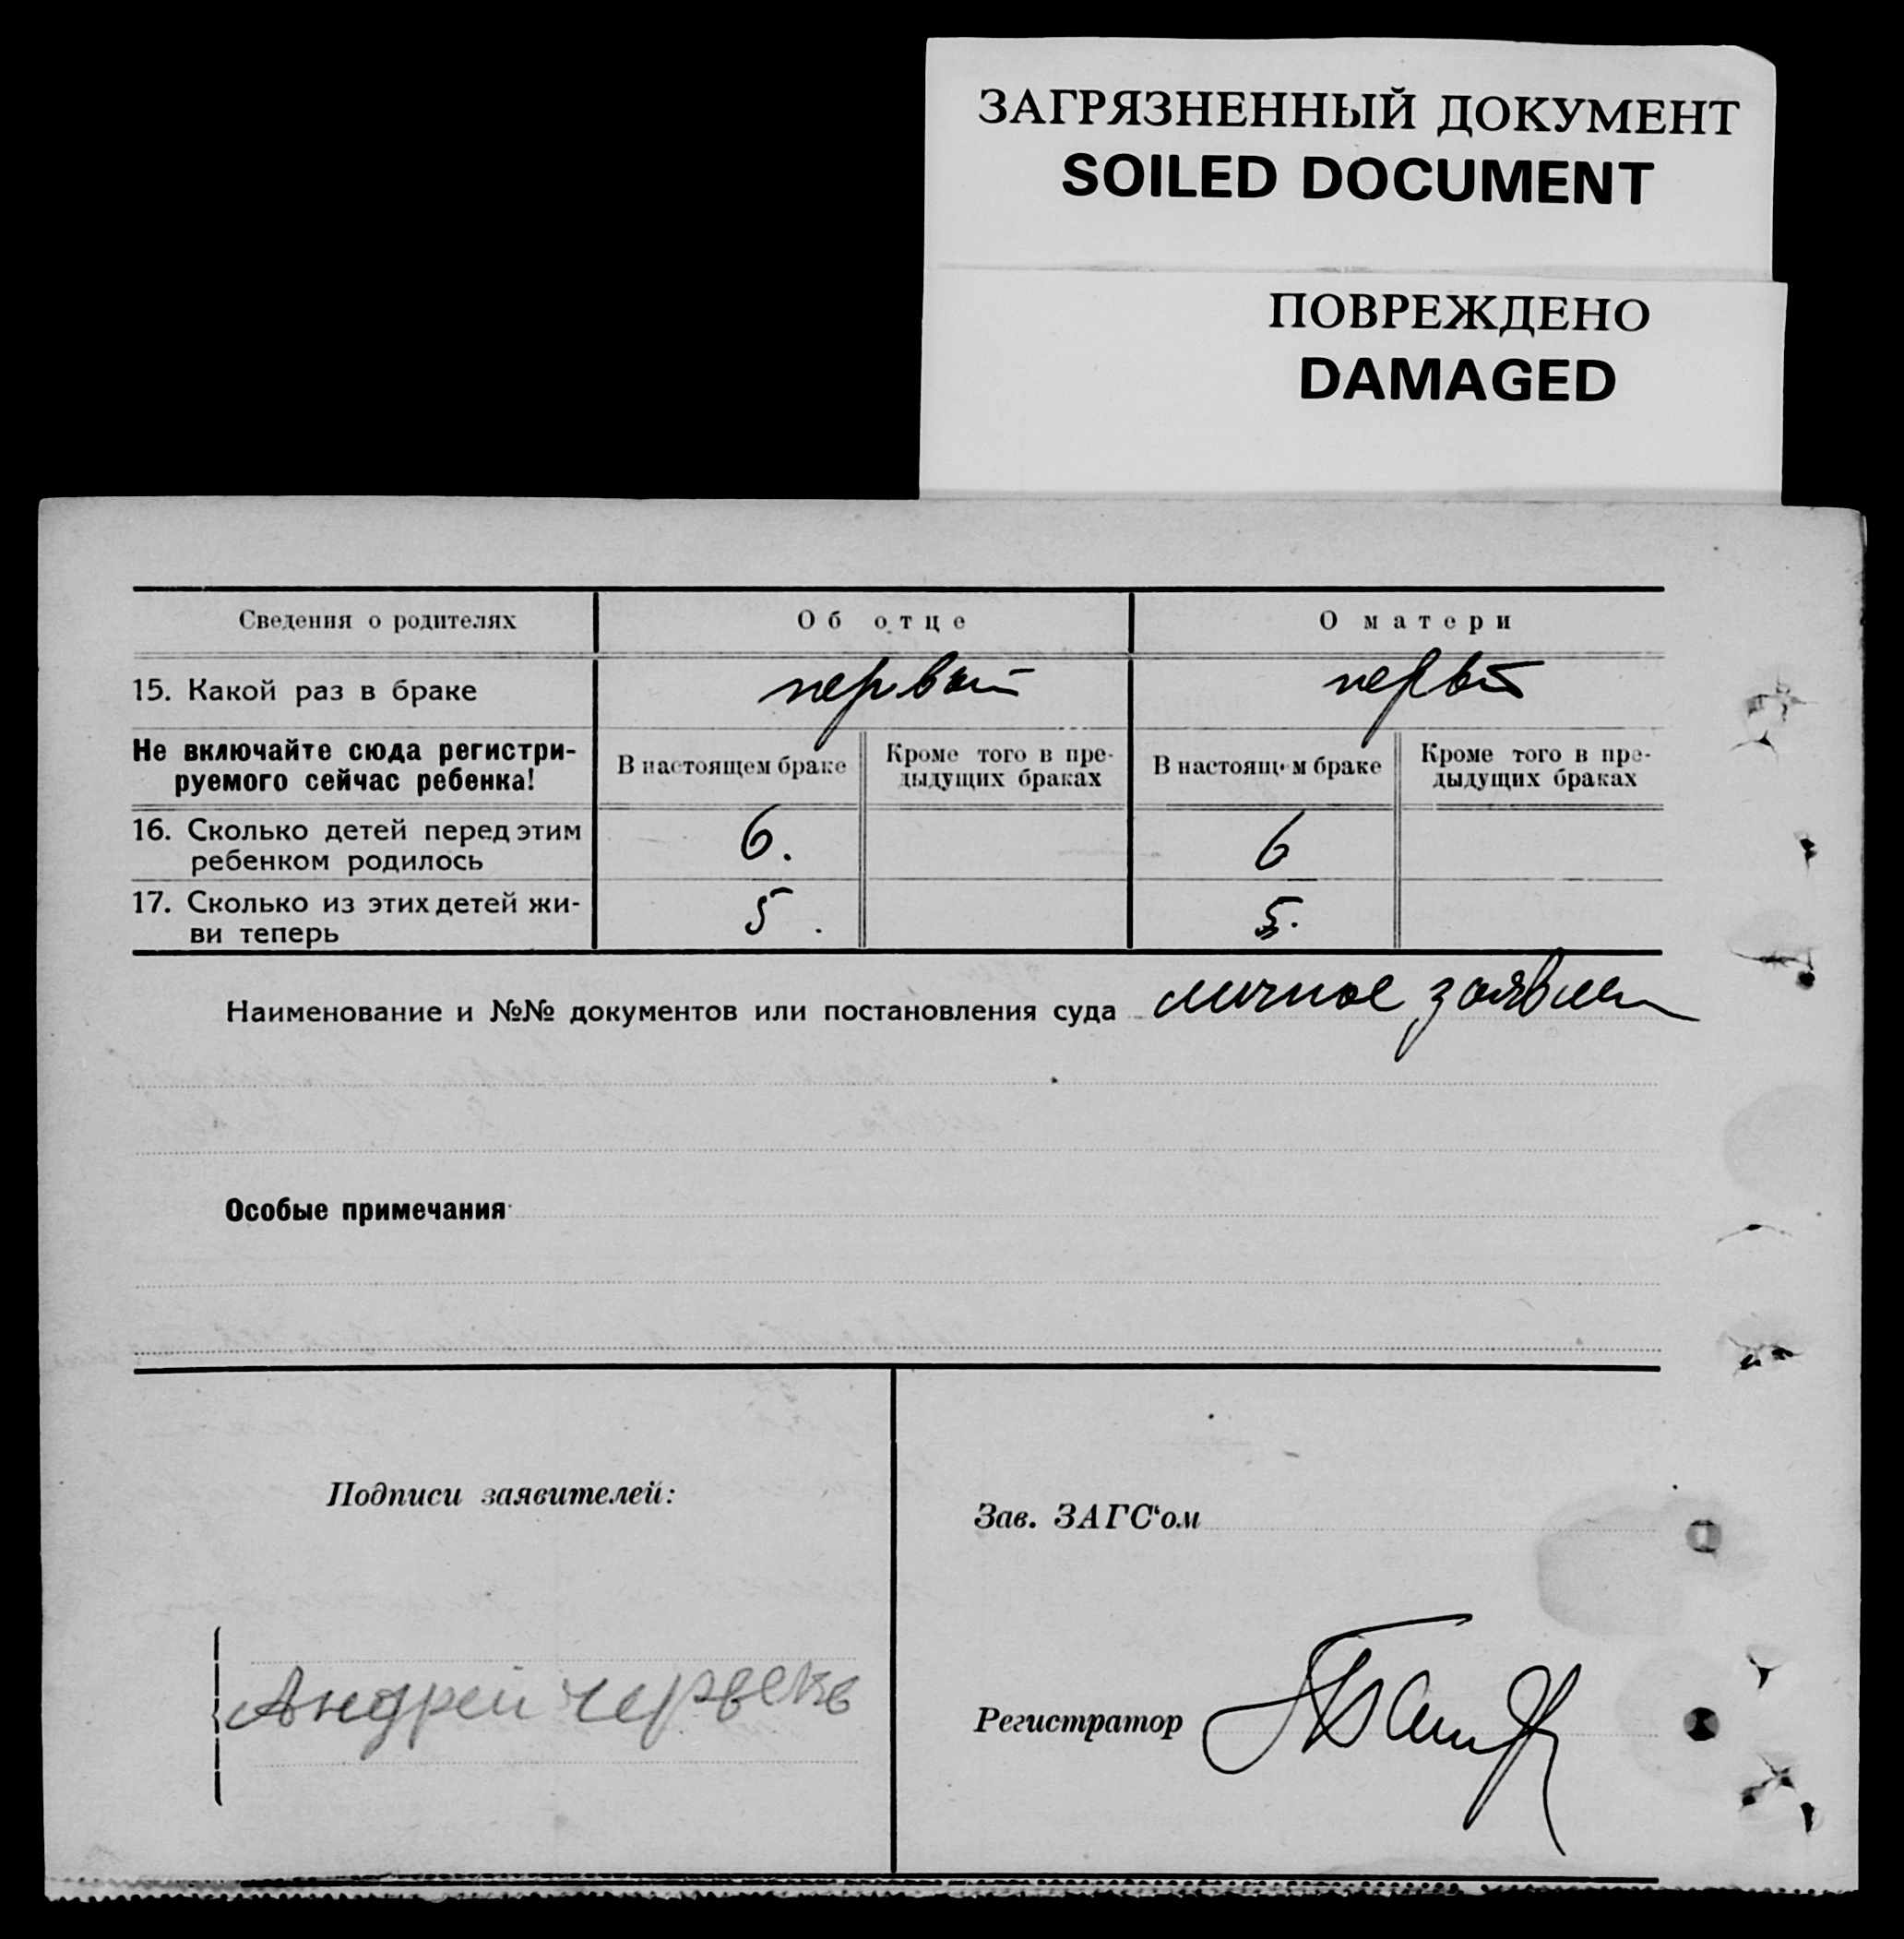 ЗАГРЯЗНЕННЫЙ ДОКУМЕНТ
SOILED DOCUMENT
ПОВРЕЖДЕНО
DAMAGED
Сведения о родителях Об отце О матери
15. Какой раз в браке первый первый
Не включайте сюда регистри-
руемого сейчас ребенка!
В настоящем браке
Кроме того в пре-
дыдущих браках
В настоящем браке
Кроме того в пре-
дыдущих браках
16. Сколько детей перед этим
ребенком родилось
6. 6
17. Сколько из этих детей жи-
ви теперь
5. 5.
Наименование и №№ документов или постановления суда личное заявлен
Особые примечания
Подписи заявителей:
Зав. ЗАГС‘ом
Андрей
Регистратор